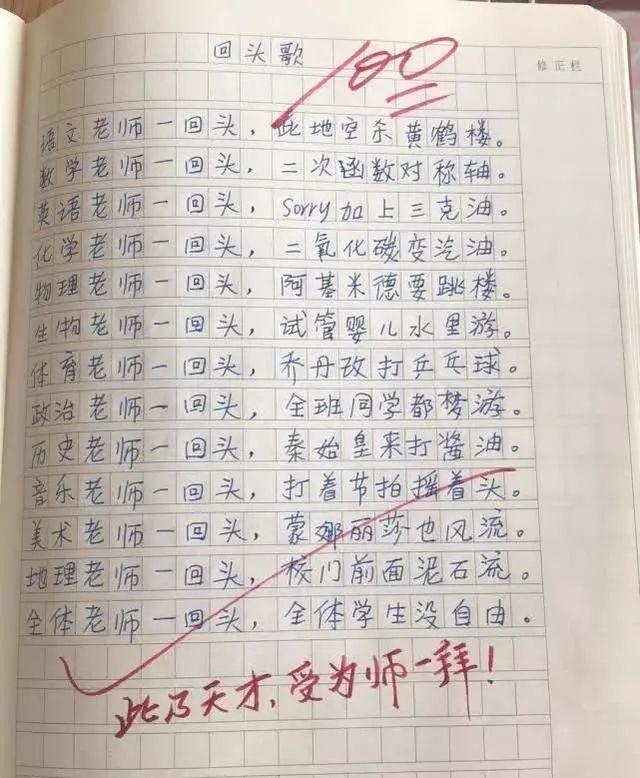 回头歌
100
修正栏
语文老师一回头，此地空杀黄鹤楼。
数学老师一回头，二次函数对称轴。
英语老师一回头，sorry加上三克油。
化学老师一回头，二氧化碳变汽油。
物理老师一回头，阿基米德要跳楼。
生物老师一回头，试管婴儿水里游。
体育老师一回头，乔丹改打乒乓球。
政治老师一回头，全班同学都梦游。
历史老师一回头，秦始皇来打酱油。
音乐老师一回头，打着节拍摇着头。
美术老师一回头，蒙娜丽莎也风流。
地理老师一回头，校门前面泥石流。
全体老师一回头，全体学生没自由。
此乃天才，受为师一拜！